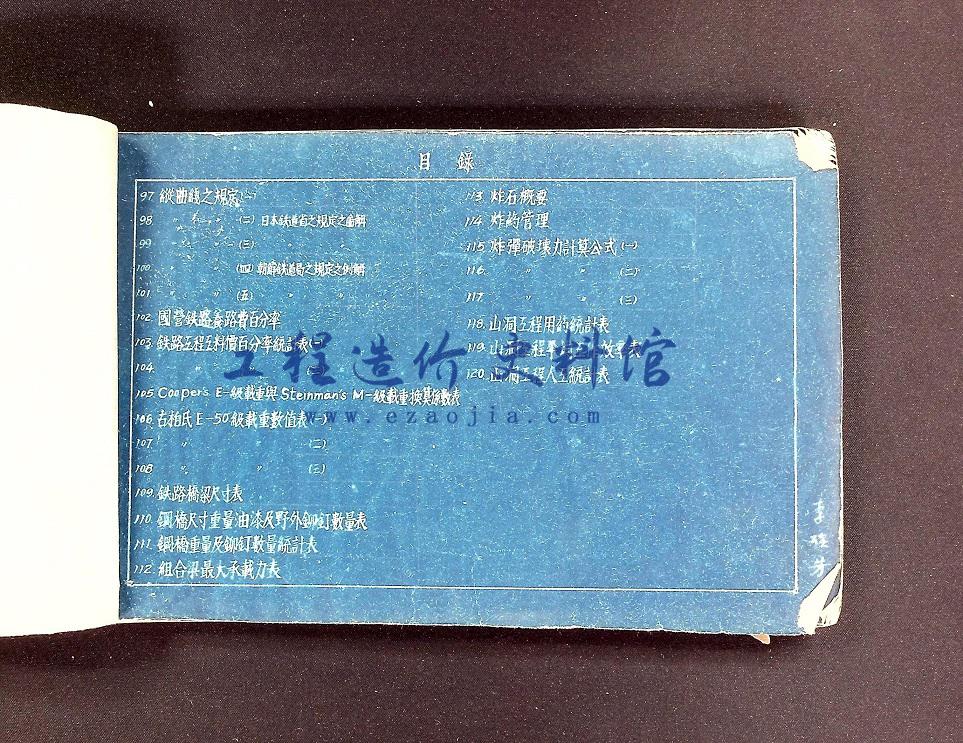 目錄
97 縱曲綫之規定 (一)
98 〃 〃 〃 (二) 日本鉄道省之規定之圖解
99 〃 〃 (三) 〃 〃
100 〃 〃 (四) 朝鮮鉄道局之規定之圖解
101 〃 〃 (五) 〃 〃
102 國營鉄路養路費百分率
103 鉄路工程工料價百分率統計表 (一)
104 〃 〃 (二)
105 Cooper's E-級載重與 Steinman's M-級載重換算係數表
106 古柏氏 E-50 級載重數值表 (一)
107 〃 〃 (二)
108 〃 〃 (三)
109 鉄路橋梁尺寸表
110 鋼橋尺寸重量油漆及野外鉚釘數量表
111 鋼橋重量及鉚釘數量統計表
112 組合梁最大承載力表
113 炸石概要
114 炸药管理
115 炸彈破壞力計算公式 (一)
116 〃 〃 (二)
117 〃 〃 (三)
118 山洞工程用药統計表
119 山洞工程 效率表
120 山洞工程人工統計表
工程造价史料馆
www.ezaojia.com
李